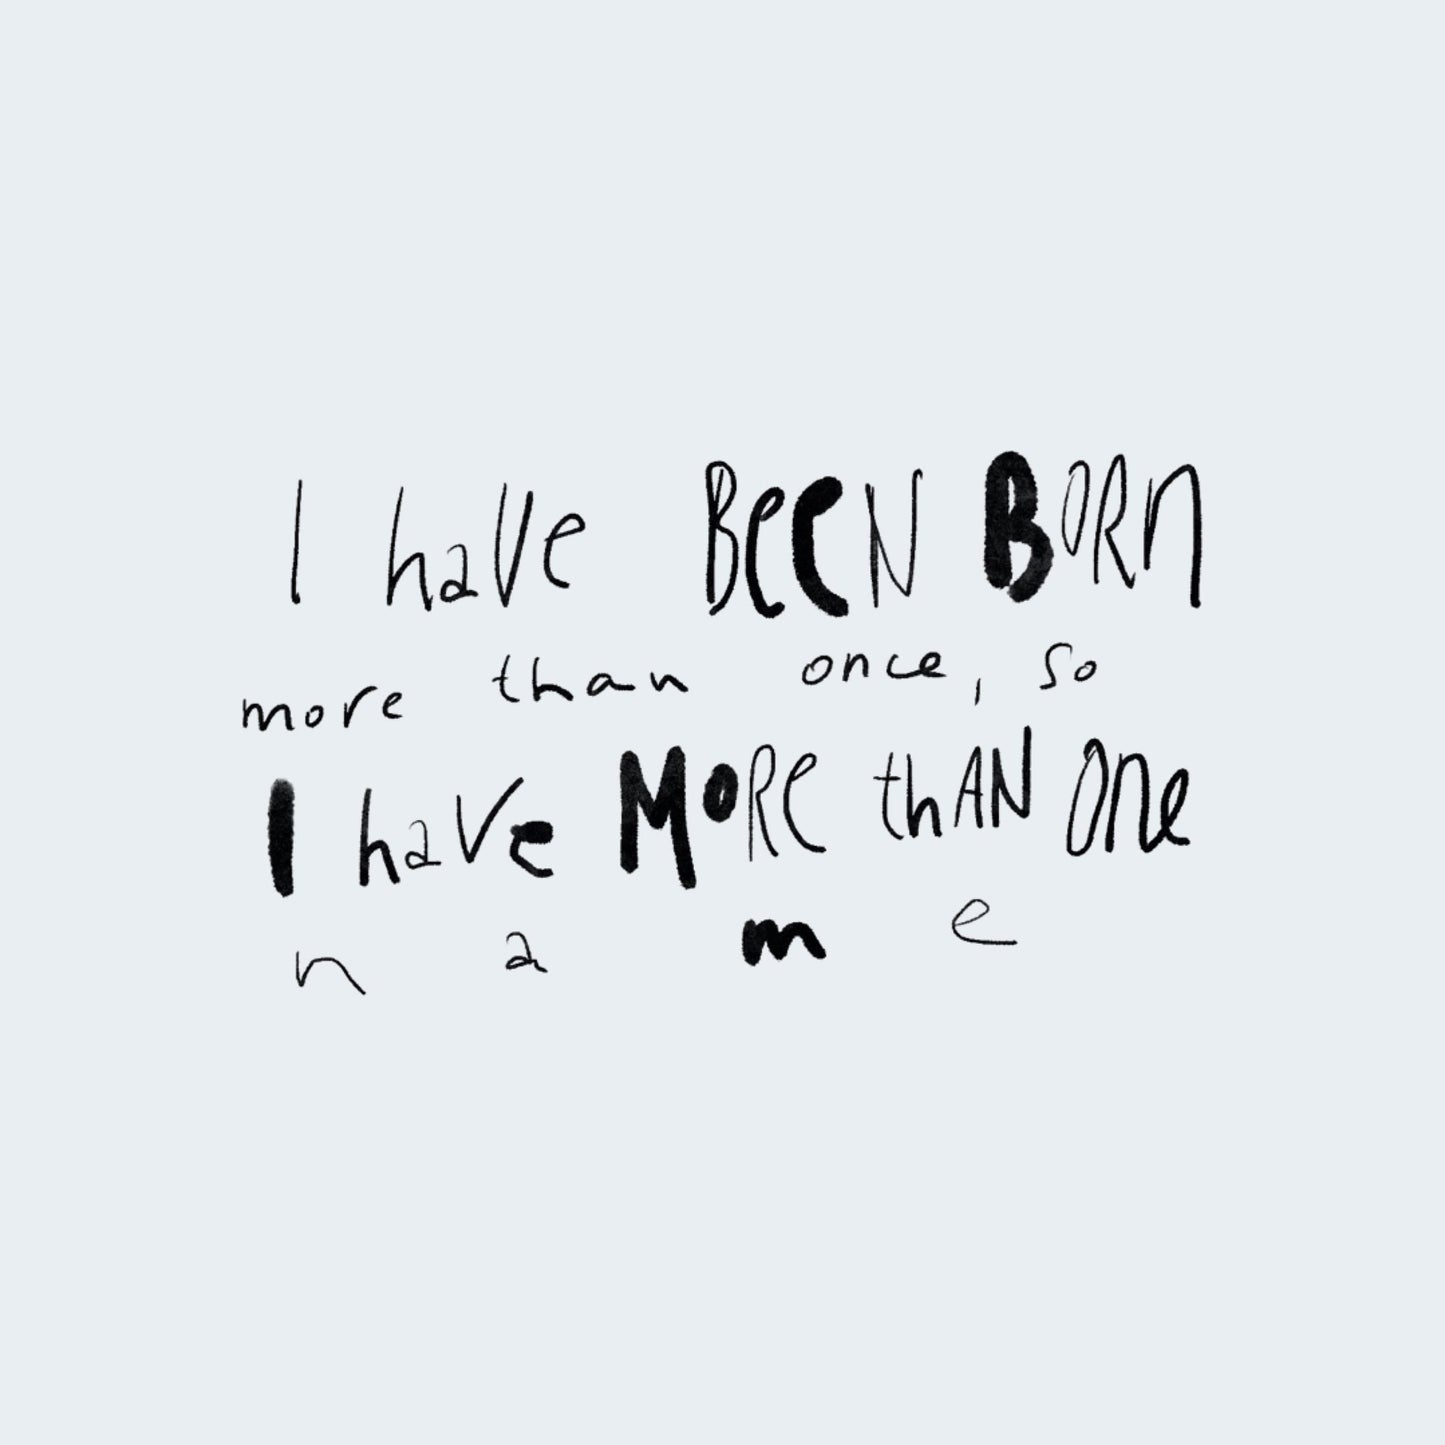 I have BeeN BORn
more than once, so
I have MoRe thAN One
n a m e